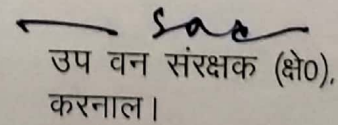 उप वन संरक्षक (क्षे०),
करनाल।